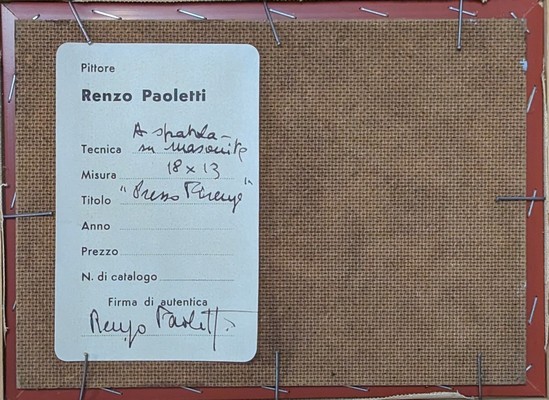 Pittore
Renzo Paoletti
A spatola -
Tecnica su masonite
Misura 18 x 13
Titolo "Presso Firenze"
Anno
Prezzo
N. di catalogo
Firma di autentica
Renzo Paoletti